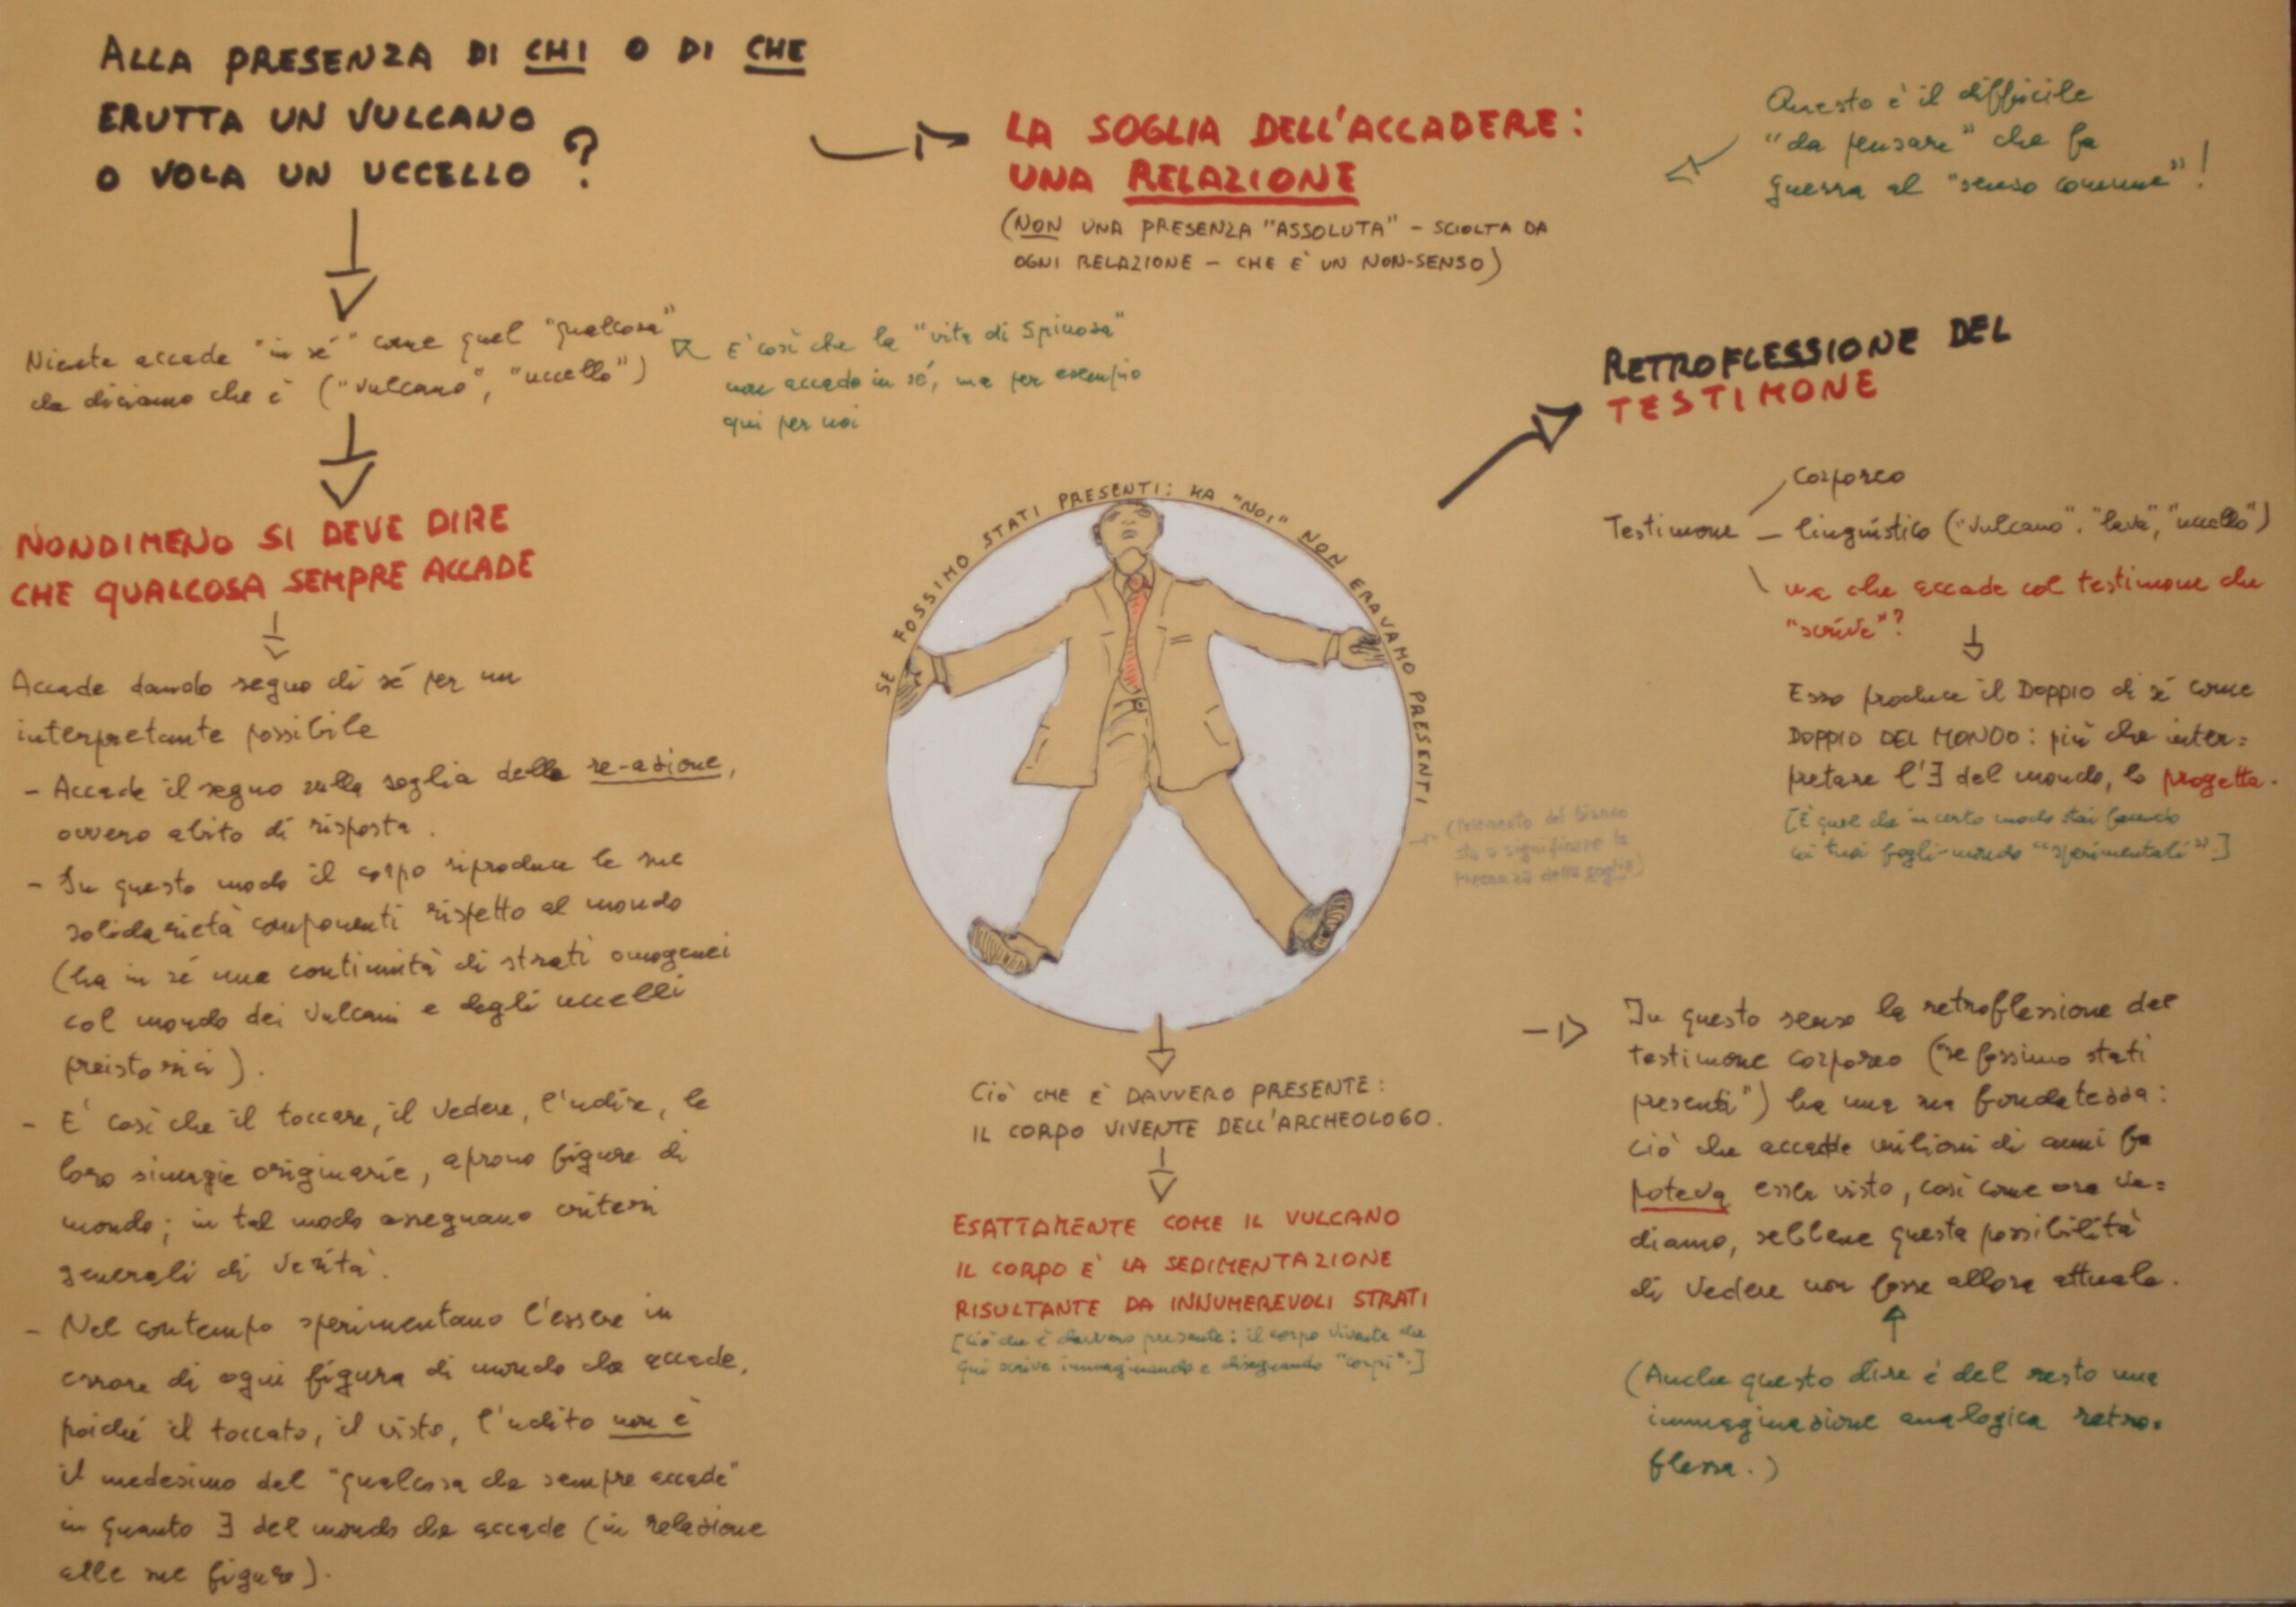 ALLA PRESENZA DI CHI O DI CHE
ERUTTA UN VULCANO
O VOLA UN UCCELLO ?
LA SOGLIA DELL'ACCADERE:
UNA RELAZIONE
(NON UNA PRESENZA "ASSOLUTA" – SCIOLTA DA
OGNI RELAZIONE – CHE E' UN NON-SENSO)
Questo è il difficile
"da pensare" che fa
guerra al "senso comune"!
Niente accade "in sé" come quel "qualcosa"
che diciamo che è ("vulcano", "uccello")
E' così che la "vita di Spinoza"
non accade in sé, ma per esempio
qui per noi
NONDIMENO SI DEVE DIRE
CHE QUALCOSA SEMPRE ACCADE
Accade dando segno di sé per un
interpretante possibile
- Accade il segno sulla soglia della re-azione,
ovvero abito di risposta.
- In questo modo il corpo riproduce le sue
solidarietà componenti rispetto al mondo
(ha in sé una continuità di strati omogenei
col mondo dei vulcani e degli uccelli
preistorici).
- E' così che il toccare, il vedere, l'udire, le
loro sinergie originarie, aprono figure di
mondo; in tal modo assegnano criteri
generali di verità.
- Nel contempo sperimentano l'essere in
errore di ogni figura di mondo che accade,
poiché il toccato, il visto, l'udito non è
il medesimo del "qualcosa che sempre accade"
in quanto ∃ del mondo che accade (in relazione
alle sue figure).
SE FOSSIMO STATI PRESENTI: MA "NOI" NON ERAVAMO PRESENTI
(l'elemento del bianco
sta a significare la
presenza della soglia)
CIÒ CHE È DAVVERO PRESENTE:
IL CORPO VIVENTE DELL'ARCHEOLOGO.
ESATTAMENTE COME IL VULCANO
IL CORPO E' LA SEDIMENTAZIONE
RISULTANTE DA INNUMEREVOLI STRATI
[Ciò che è davvero presente: il corpo vivente che
qui scrive immaginando e disegnando "corpi".]
RETROFLESSIONE DEL
TESTIMONE
Corporeo
Testimone – linguistico ("vulcano", "lava", "uccello")
ma che accade col testimone che
"scrive"?
Esso produce il DOPPIO di sé come
DOPPIO DEL MONDO: più che inter=
pretare l'∃ del mondo, lo progetta.
[È quel che in certo modo stai facendo
coi tuoi fogli-mondo "sperimentali".]
In questo senso la retroflessione del
testimone corporeo ("se fossimo stati
presenti") ha una sua fondatezza:
ciò che accadde milioni di anni fa
poteva esser visto, così come ora ve=
diamo, sebbene questa possibilità
di vedere non fosse allora attuale.
(Anche questo dire è del resto una
immaginazione analogica retro=
flessa.)